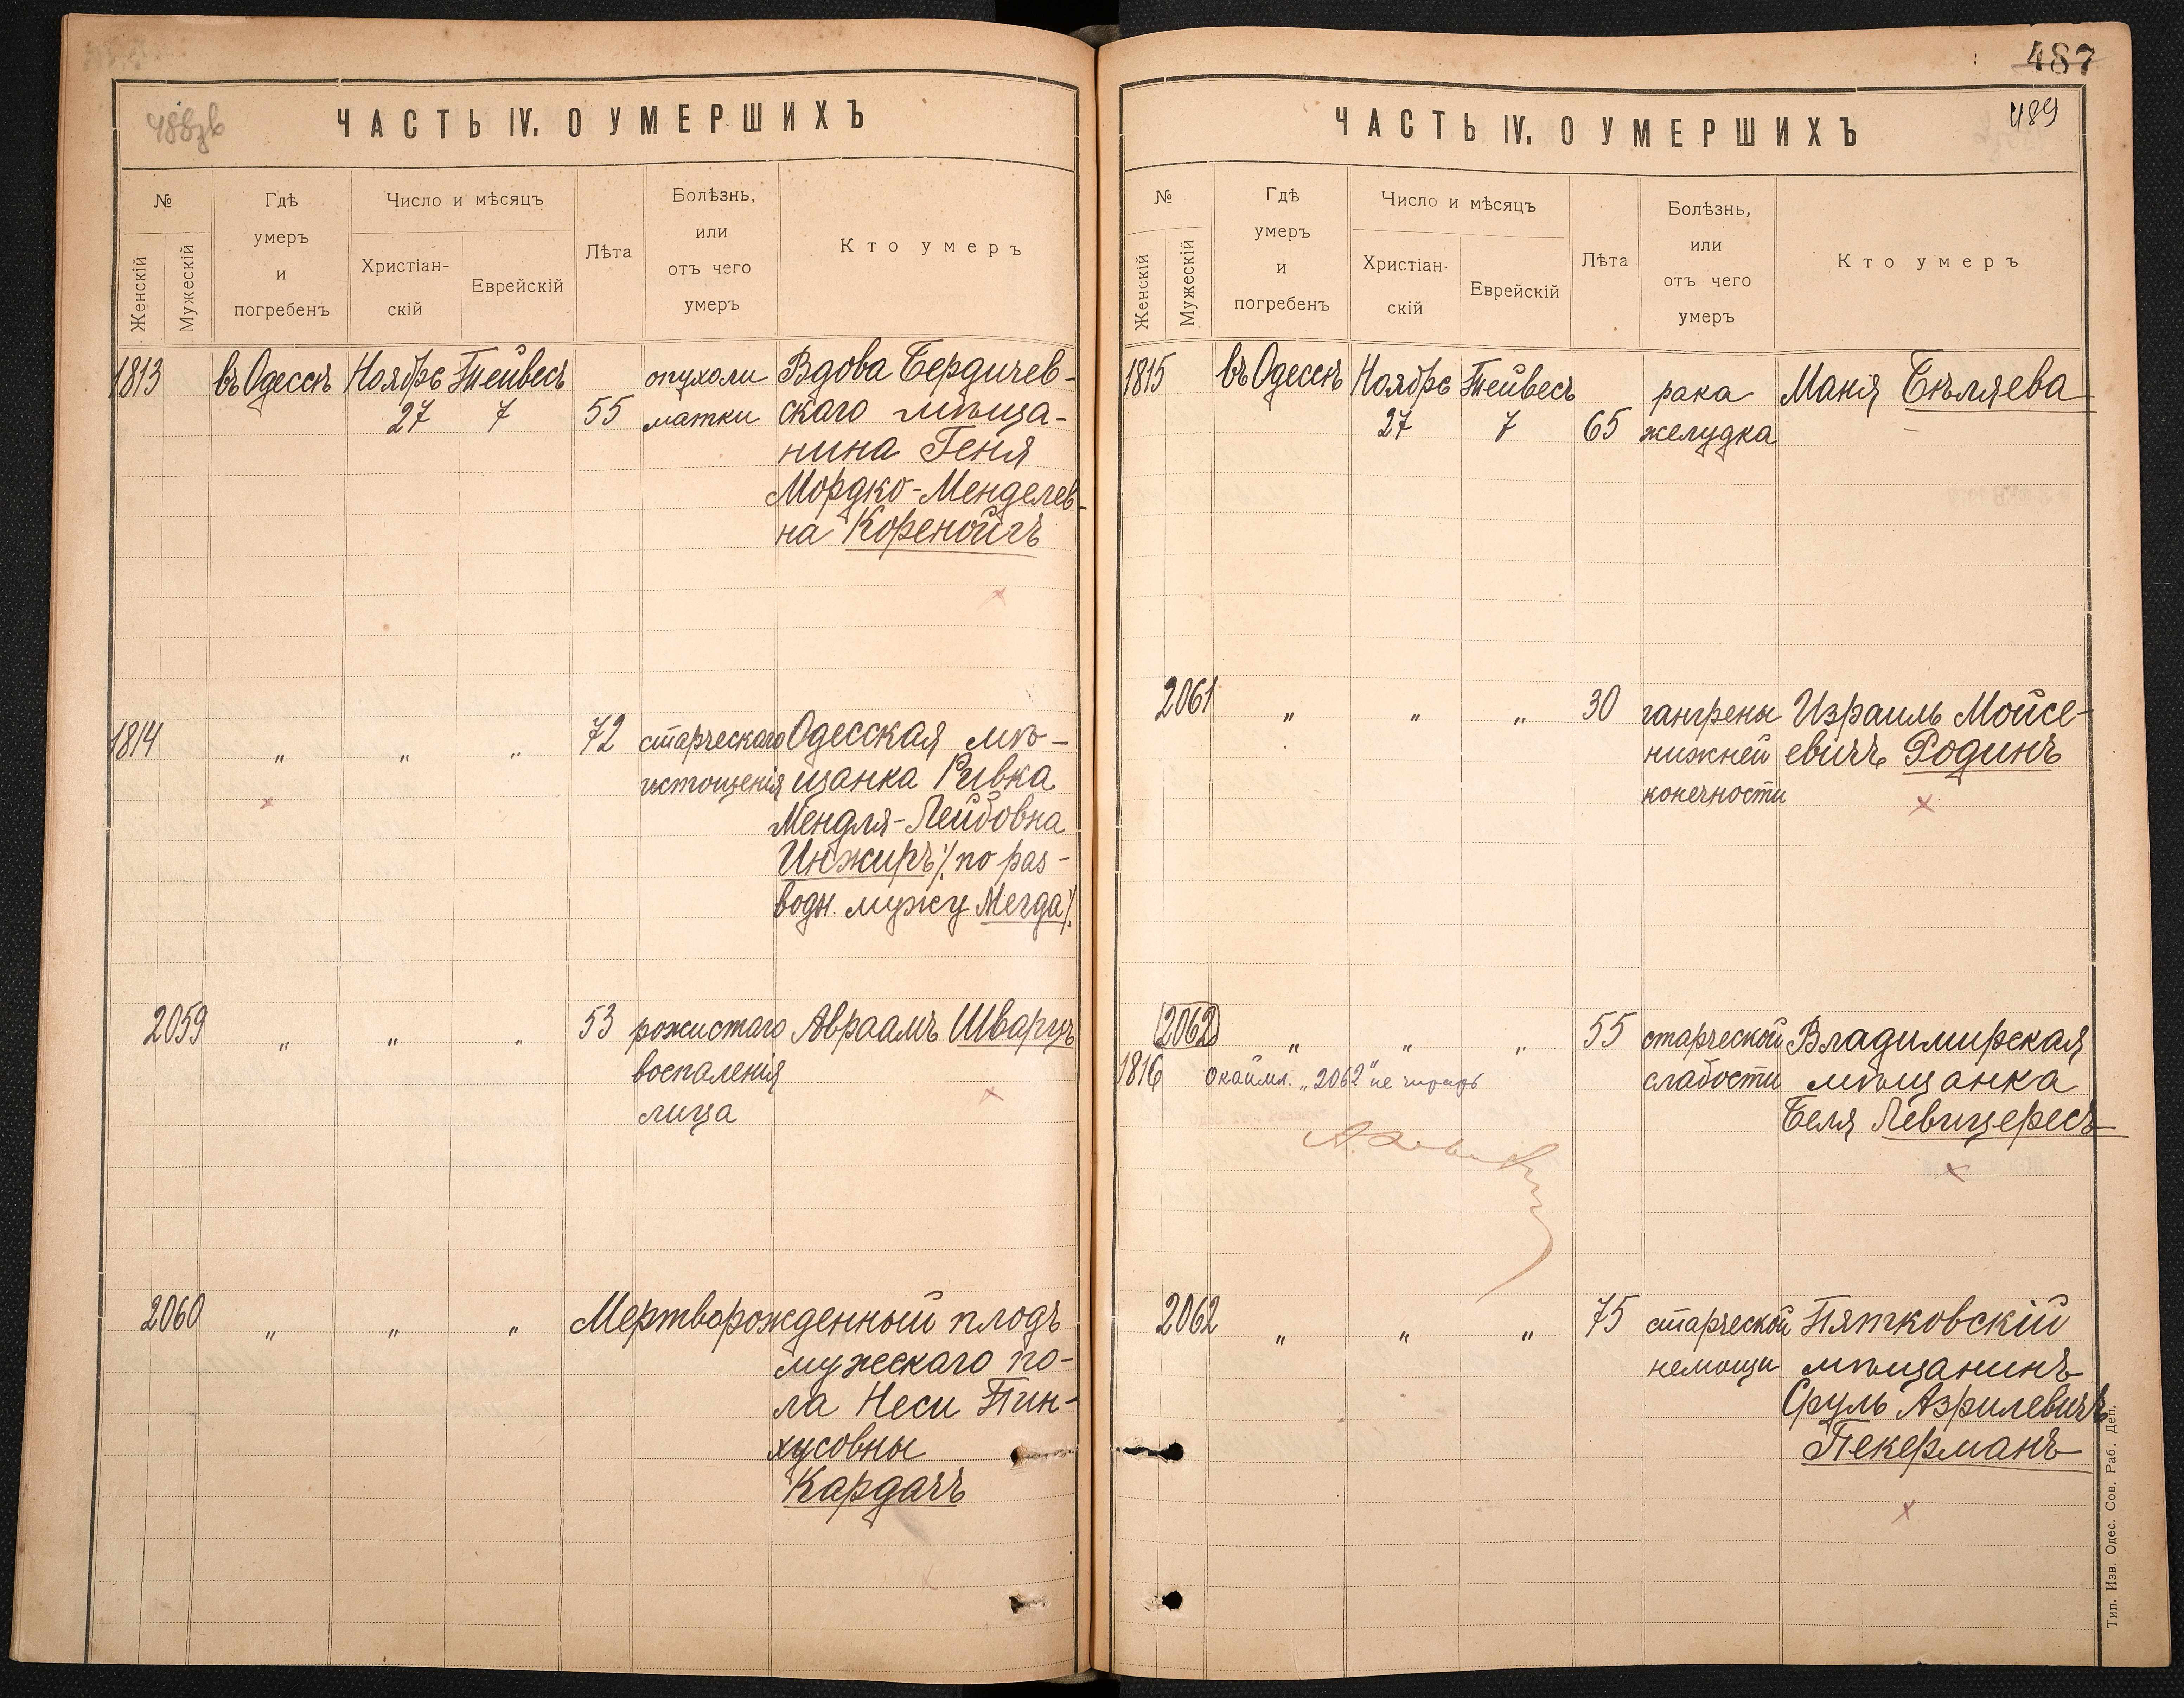 488зв
ЧАСТЬ IV. О УМЕРШИХЪ
№
Женскій
Мужескій
Гдѣ
умеръ
и
погребенъ
Число и мѣсяцъ
Христіан-
скій
Еврейскій
Лѣта
Болѣзнь,
или
отъ чего
умеръ
Кто умеръ
1813 въ Одессѣ Ноябрь Тейвесъ опухоли Вдова Бердичев-
27 7 55 матки скаго мѣща-
нина Геня
Мордко-Менделев-
на Коренойгъ
1814 " " " 72 старческаго Одесская мѣ-
истощенія щанка Ривка
Мендля-Лейбовна
Инжиръ /. по раз-
водн. мужу Мегда /.
2059 " " " 53 рожистаго Авраамъ Шварцъ
воспаленія
лица
2060 " " " Мертворожденный плодъ
мужескаго по-
ла Неси Пин-
хусовны
Кардачъ
487
489
ЧАСТЬ IV. О УМЕРШИХЪ
№
Женскій
Мужескій
Гдѣ
умеръ
и
погребенъ
Число и мѣсяцъ
Христіан-
скій
Еврейскій
Лѣта
Болѣзнь,
или
отъ чего
умеръ
Кто умеръ
1815 въ Одессѣ Ноябрь Тейвесъ рака Маня Бѣляева
27 7 65 желудка
2061 " " " 30 гангрены Израиль Мойсе-
нижней евичъ Родинъ
конечности
2062 " " " 55 старческой Владимирская
1816 окаймл. „2062" не читать слабости мѣщанка
Беля Левицересъ
2062 " " " 75 старческой Пятковскій
немощи мѣщанинъ
Сруль Азрилевичъ
Пекерманъ
Тип. Изв. Одес. Сов. Раб. Деп.